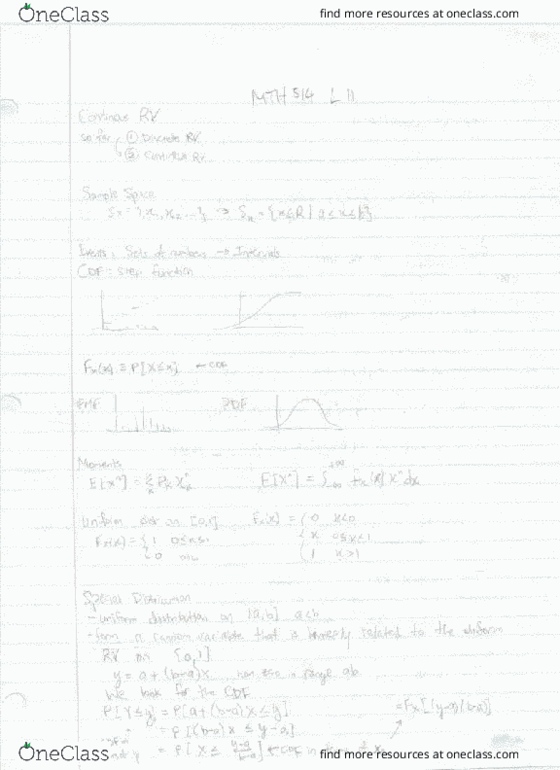 OneClass
find more resources at oneclass.com
MTH 514 L 11
Continuous RV
so far ① Discrete RV
② Continuous RV
Sample Space
Sx = {x∈R | a≤x≤b}
Events: Sets of numbers → Intervals
CDF = Step function
Fx(x) = P[X≤x] ← CDF
PMF
PDF
Moments
E[X^n] = Σ Pk Xk^n
E[X^n] = ∫ fx(x) x^n dx
Uniform on [0,1]
Fx(x) = { 0 x<0
fx(x) = { 1 0≤x≤1
x 0≤x≤1
0 o/w
1 x>1
Special Distribution
- uniform distribution on [a,b] a<b
- form a random variable that is linearly related to the uniform
RV on [0,1]
y = a + (b-a)x range ab
We look for the CDF
P[Y≤y] = P[a+(b-a)x≤y]
= Fx[(y-a)/(b-a)]
= P[(b-a)x ≤ y-a]
= P[X ≤ (y-a)/(b-a)] ← CDF
OneClass
find more resources at oneclass.com